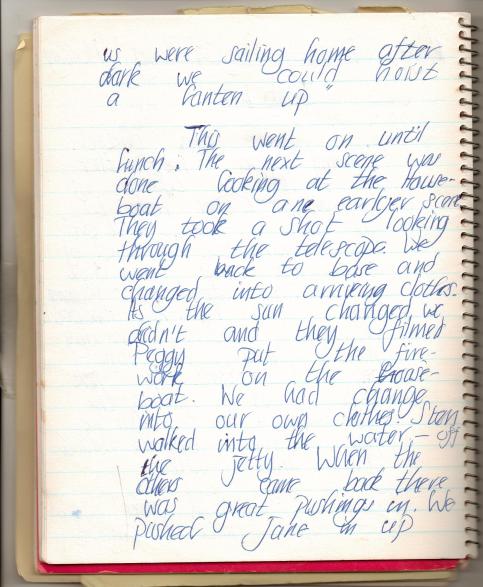 us were sailing home after
dark we could hoist
a lanten up"
This went on until
lunch. The next scene was
done looking at the house-
boat on ane earlyer scene
They took a shot looking
through the telescope. We
went back to base and
changed into arriveing clothes.
As the sun changed we
didn't and they filmed
Peggy put the fire-
work on the house-
boat. We had change
into our own clothes. Stan
walked into the water - off
the jetty. When the
others came back there
was great pushings in. We
pushed Jane in up